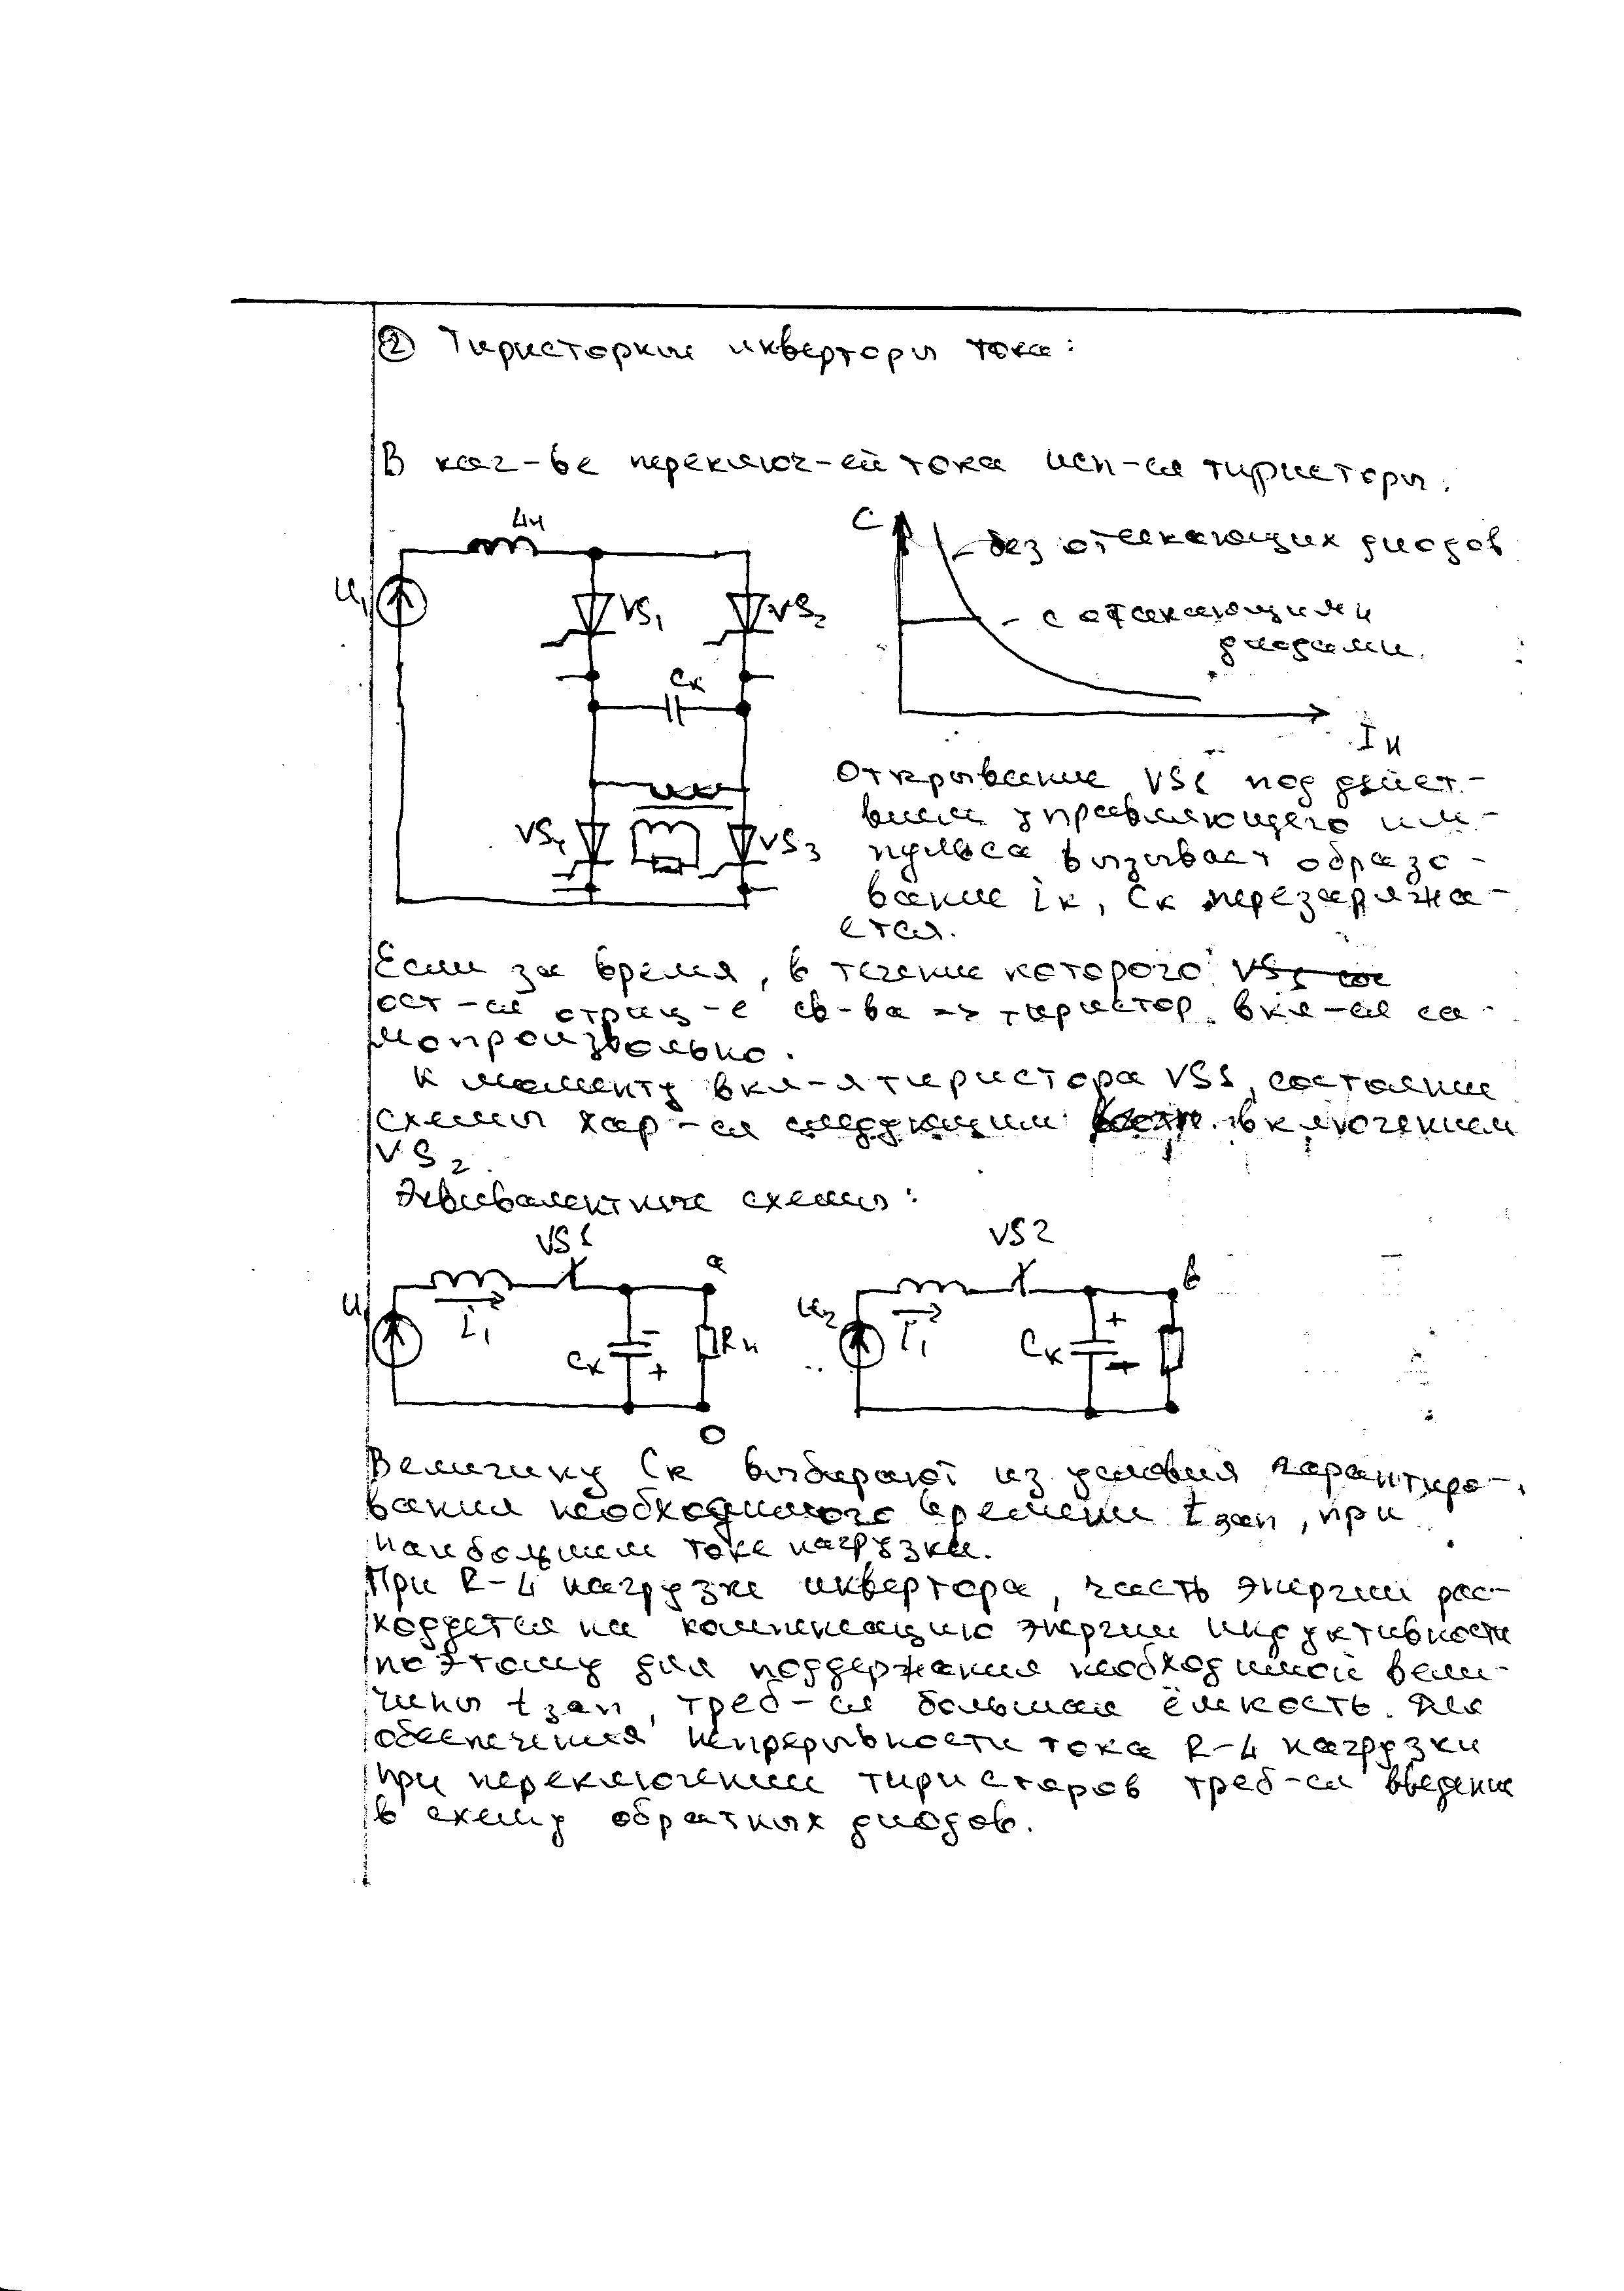 ② Тиристорные инверторы тока:
В кач-ве переключ-ей тока исп-ся тиристоры.
Lн
C
- без отсекающих диодов
U₁
VS₁
VS₂
- с отсекающими
диодами.
Cк
Iн
Открывание VS1 под дейст-
вием управляющего им-
VS₄
VS₃
пульса вызывает образо-
вание iк, Cк перезаряжа-
ется.
Если за время, в течение которого
ост-ся отриц-е св-ва => тиристор вкл-ся са-
мопроизвольно.
К моменту вкл-я тиристора VS1, состояние
схемы хар-ся следующим включением
VS₂.
Эквивалентные схемы:
VS1
VS2
a
в
U₁
i₁
Cк
- +
Rн
U₂
i₁
Cк
+
0
Величину Cк выбирают из условия гарантиро-
вания необходимого времени tзап, при
наибольшем токе нагрузки.
При R-L нагрузке инвертора, часть энергии рас-
ходуется на компенсацию энергии индуктивности
поэтому для поддержания необходимой вели-
чины tзап, треб-ся большая ёмкость. Для
обеспечения непрерывности тока R-L нагрузки
при переключении тиристоров треб-ся введение
в схему обратных диодов.